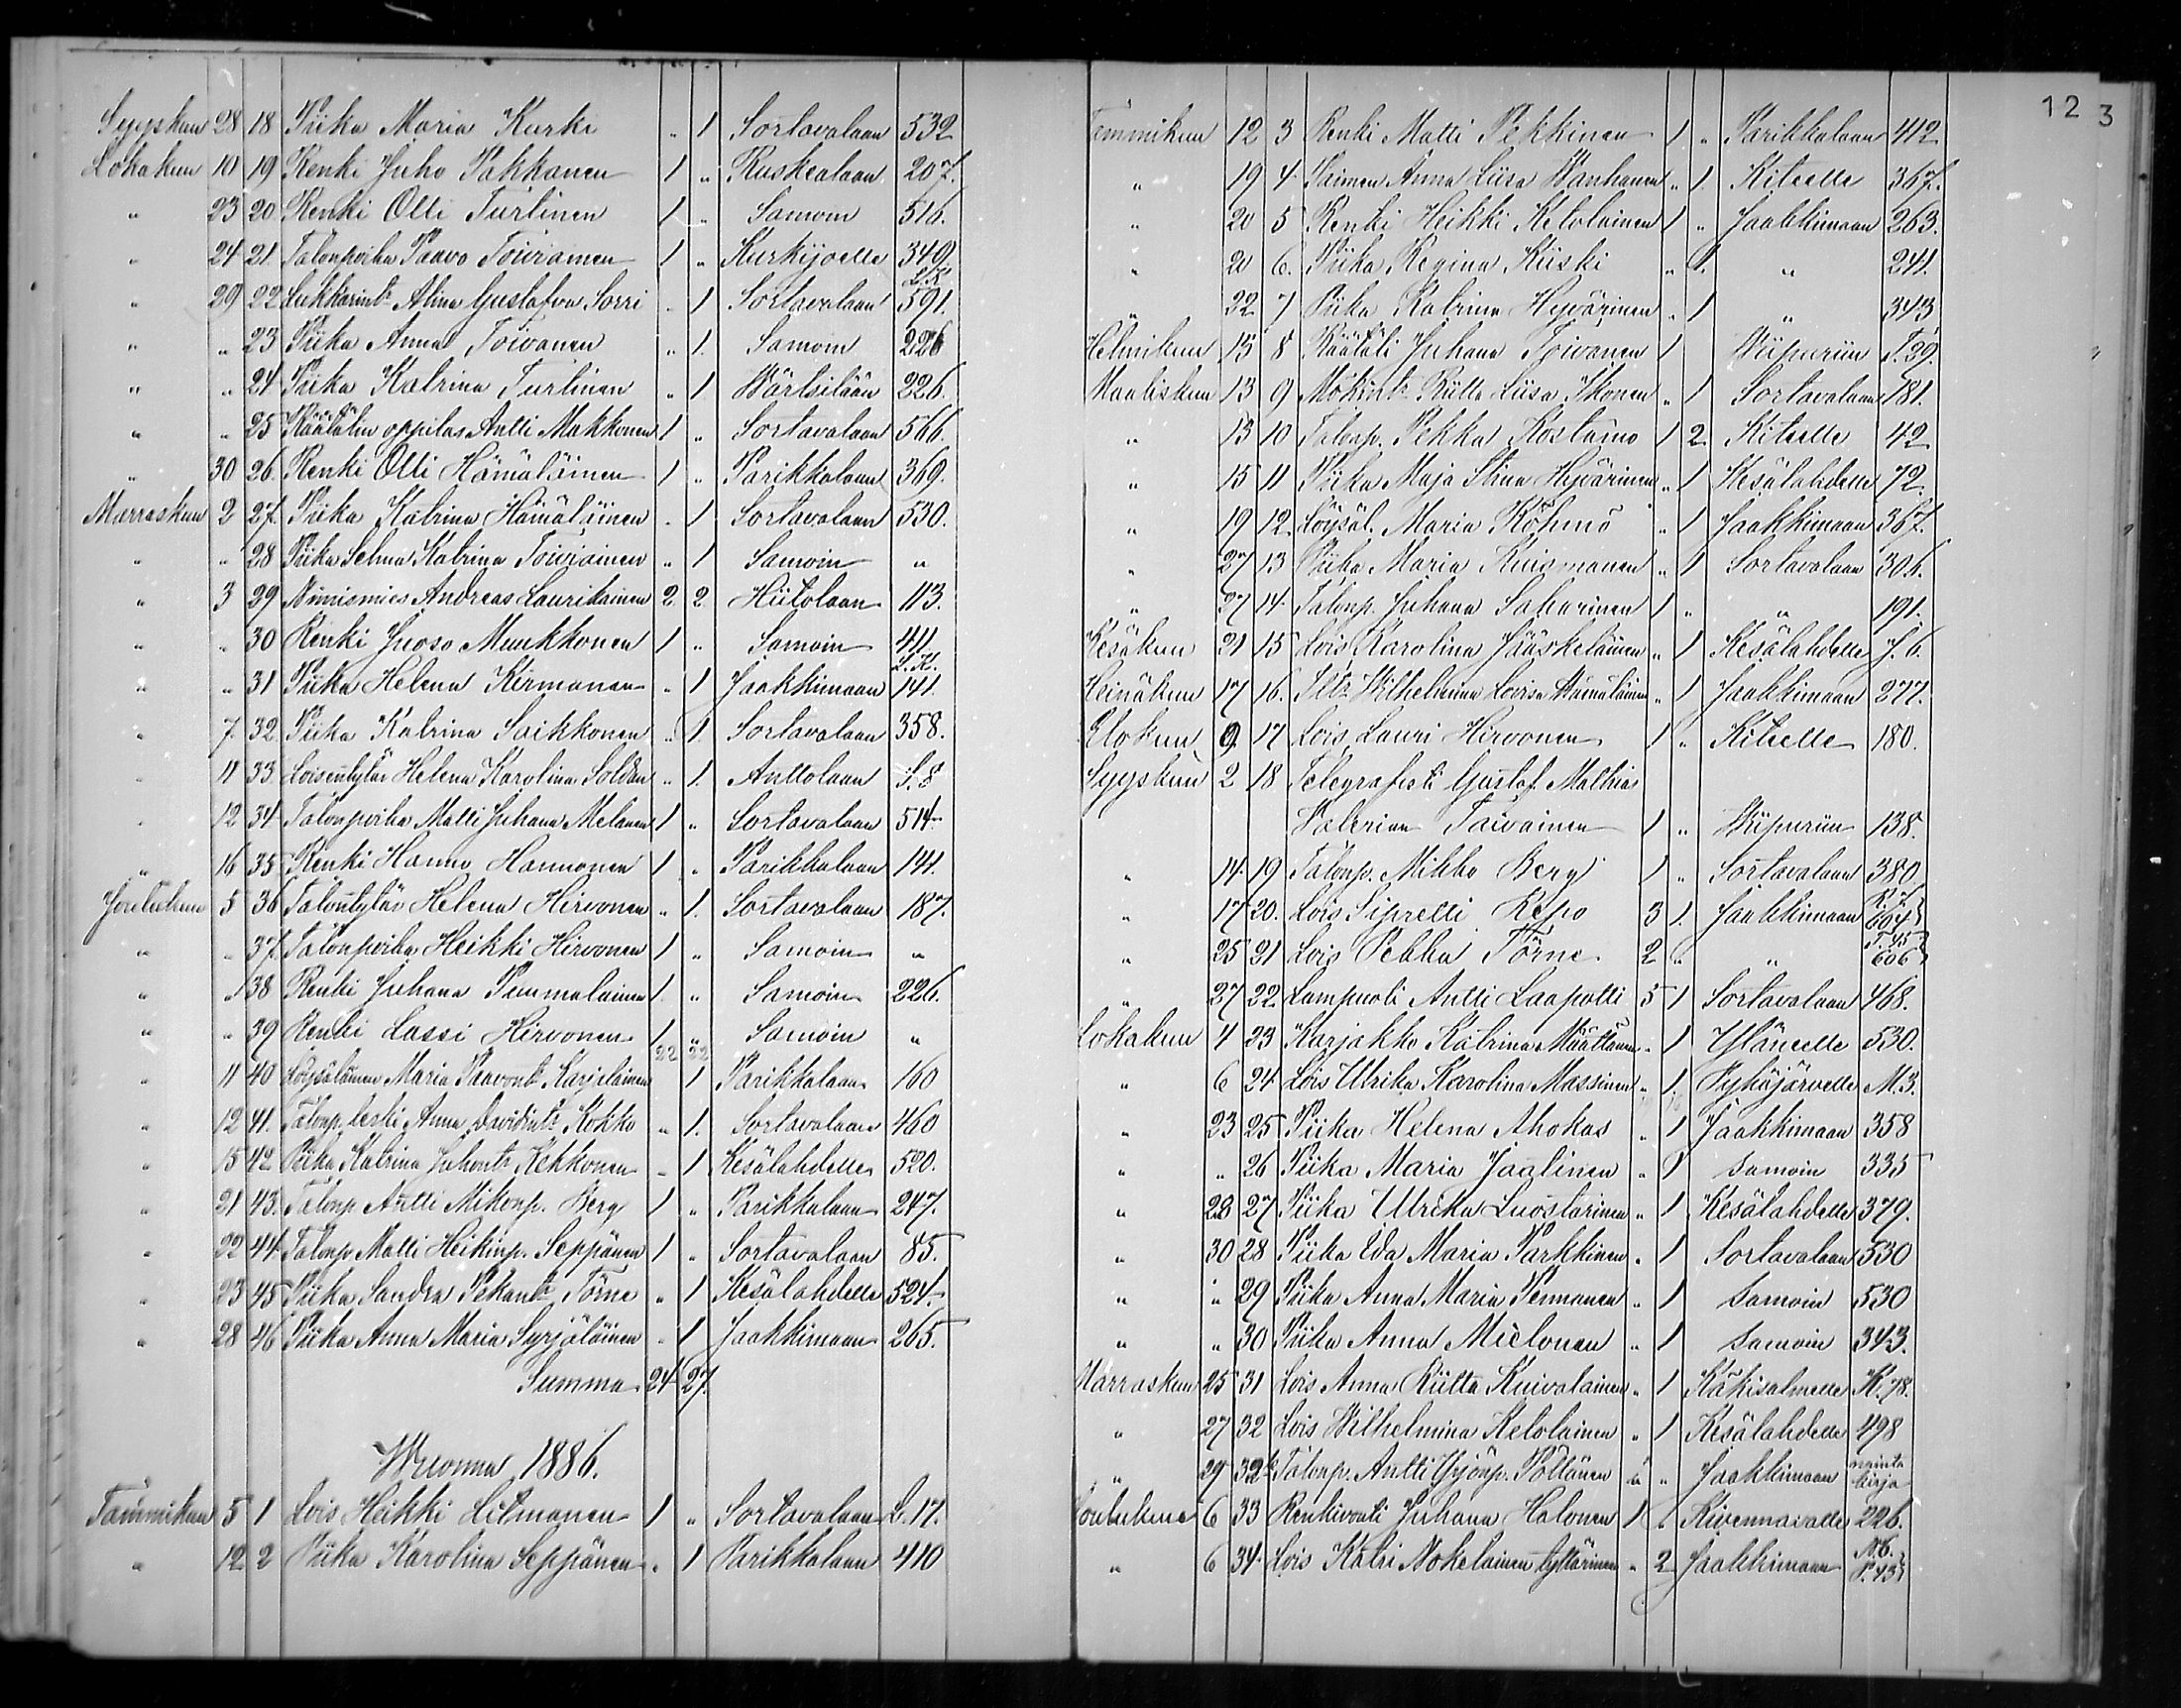 Syyskuu 28 18 Piika Maria Kurki " 1 Sortavalaan 532
Lokakuu 10 19 Renki Juho Pakkanen 1 " Ruskealaan 207.
" 23 20 Renki Olli Turtinen 1 " Samoin 516.
" 24 21. Talonpoika Paavo Toiviainen 1 " Kurkijoelle 349.
" 29 22 Lukkarintr Alina Gustafva Sorri " 1 Sortavalaan L.K. 591.
" " 23 Piika Anna Toivanen " 1. Samoin 226
" " 24 Piika Katrina Turtinen " 1 Wärtsilään 226.
" " 25 Räätälin oppilas Antti Makkonen 1 " Sortavalaan 566.
" 30 26. Renki Olli Hämäläinen 1 " Parikkalaan 369.
Marraskuu 2 27. Piika Katrina Hämäläinen " 1 Sortavalaan 530.
" " 28 Piika Selma Katrina Toiviainen " 1 Samoin "
" 3 29 Nimismies Andreas Laurikainen 2. 2. Hiitolaan 113.
" " 30 Renki Juoso Munkkonen 1 " Samoin 411
" " 31 Piika Helena Kirmanen " 1 Jaakkimaan L.K. 141.
" 7. 32. Piika Katrina Saikkonen " 1. Sortavalaan 358.
" 11 33. Loisentytär Helena Karolina Soldan " 1. Anttolaan S. 8
" 12 34. Talonpoika Matti Juhana Melanen 1 " Sortavalaan 514.
" 16 35 Renki Hannu Hannonen 1 " Parikkalaan 141.
Joulukuu 5 36 Talontytär Helena Hirvonen " 1. Sortavalaan 187.
" " 37. Talonpoika Heikki Hirvonen 1 " Samoin "
" " 38 Renki Juhana Pummalainen 1. " Samoin 226.
" " 39 Renki Lassi Hirvonen 1 " Samoin "
22 22
" 11 40 Löysäläinen Maria Paavontr Karjalainen 1 Parikkalaan 160
" 12 41. Talonp. leski Anna Davidintr Kokko " 1. Sortavalaan 460
" 15 42 Piika Katrina Juhontr Kekkonen " 1 Kesälahdelle 520.
" 21 43. Talonp Antti Mikonp. Berg 1 " Parikkalaan 247.
" 22 44. Talonp Matti Heikinp. Seppänen 1 " Sortavalaan 85.
" 23 45 Piika Sandra Pekantr Törne " 1 Kesälahdelle 524.
" 28 46 Piika Anna Maria Syrjäläinen " 1 Jaakkimaan 265.
Summa 24 27.
Wuonna 1886.
Tammikuu 5 1 Lois Heikki Litmanen 1 " Sortavalaan L. 17.
" 12 2 Piika Karolina Seppänen " 1 Parikkalaan 410
12 3
Tammikuu 12 3 Renki Matti Pekkinen 1 " Parikkalaan 412
" 19 4. Nainen Anna Liisa Wanhanen " 1. Kiteelle 367.
" 20 5 Renki Heikki Kelolainen 1 " Jaakkimaan 263.
" 21 6. Piika Regina Kiiski " 1. " 241.
" 22. 7 Piika Katrina Hyvärinen " 1 " 343
Helmikuu 15 8 Räätäli Juhana Toivanen 1 Wiipuriin T. 39.
Maaliskuu 13 9 Mökintr Riitta Liisa Ikonen " 1 Sortavalaan 181.
" 13 10 Talonp. Pekka Kostamo 1 2. Kiteelle 42
" 15 11 Piika Maja Stina Hyvärinen " 1 Kesälahdelle 72.
" 19 12. Löysäl. Maria Köhmö " 1 Jaakkimaan 367.
" 27 13 Piika Maria Kuismanen " 1 Sortavalaan 306.
" 27 14. Talonp. Juhana Sakarinen 1 " " 191.
Kesäkuu 21 15 Lois Karolina Jääskeläinen " 1 Kesälahdelle J. 6.
Heinäkuu 17 16. Wilhelmina Lovisa Hämäläinen " 1 Jaakkimaan 277.
Elokuu 9. 17 Lois Lauri Hirvonen 1 " Kiteelle 180.
Syyskuu 2 18 Telegrafisti Gustaf Mathias
Valerian Taivainen 1 " Wiipuriin 138.
" 14. 19 Talonp. Mikko Berg 1 " Sortavalaan 380
" 17 20. Lois Sipretti Repo 3 1. Jaakkimaan R. 7. 604
" 25 21 Lois Pekka Törne 2 " " T. 45 606
" 27 22. Lampuoti Antti Laapotti 5 1 Sortavalaan 468.
Lokakuu 4 23 Karjakko Katrina Määttänen " 1 Yläneelle 530.
" 6 24. Lois Ulrika Karolina Massinen " 1. Pyhäjärvelle M. 3.
" 23 25 Piika Helena Ahokas " 1 Jaakkimaan 358
" " 26 Piika Maria Jaatinen " 1 Samoin 335
" 28 27 Piika Ulrika Luostarinen " 1 Kesälahdelle 379.
" 30 28 Piika Ida Maria Parkkinen " 1 Sortavalaan 530
" " 29 Piika Anna Maria Pennanen " 1 Samoin 530
" " 30 Piika Anna Mielonen " 1 Samoin 343.
Marraskuu 25 31 Lois Anna Riitta Kuivalainen " 1 Käkisalmelle K. 78.
" 27 32 Lois Wilhelmina Kelolainen " 1 Kesälahdelle 498
" 29 32b Talonp. Antti Yrjönp. Pöllänen " " Jaakkimaan kirja
Joulukuu 6 33 Renkivouti Juhana Halonen 1 " Kivennavalle 226.
" 6 34. Lois Katri Nokelainen tyttärineen " 2 Jaakkimaan N. 6. P. 43